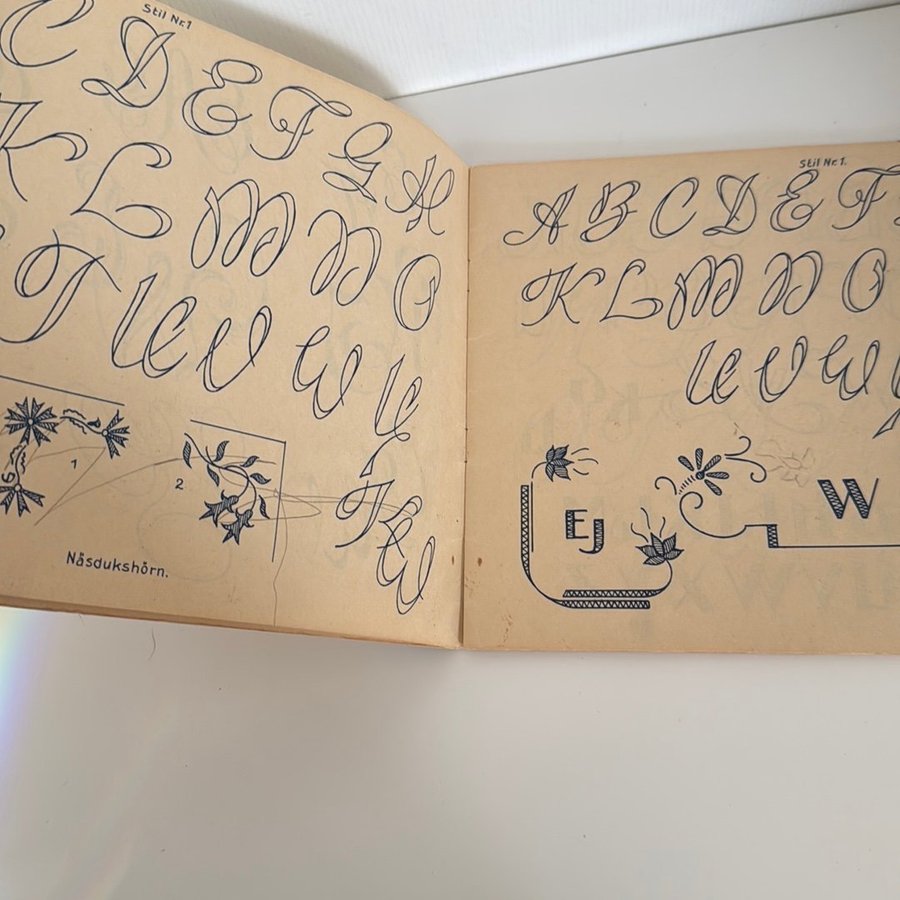 Stil Nr. 1
C D E F G H
K L M N O
T U V W
1
2
Näsdukshörn.
Stil Nr. 1.
A B C D E F
K L M N O
U V W
EJ
W